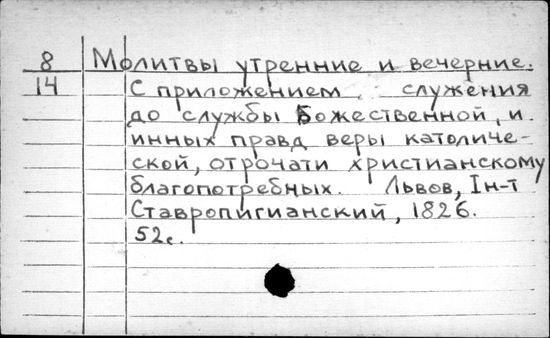 8 Молитвы утренние и вечерние.
14 С приложением служения
до службы Божественной, и
инных правд веры католиче-
ской, отрочати христианскому
благопотребных. Львов, Iн-т
Ставропигианский, 1826.
52с.